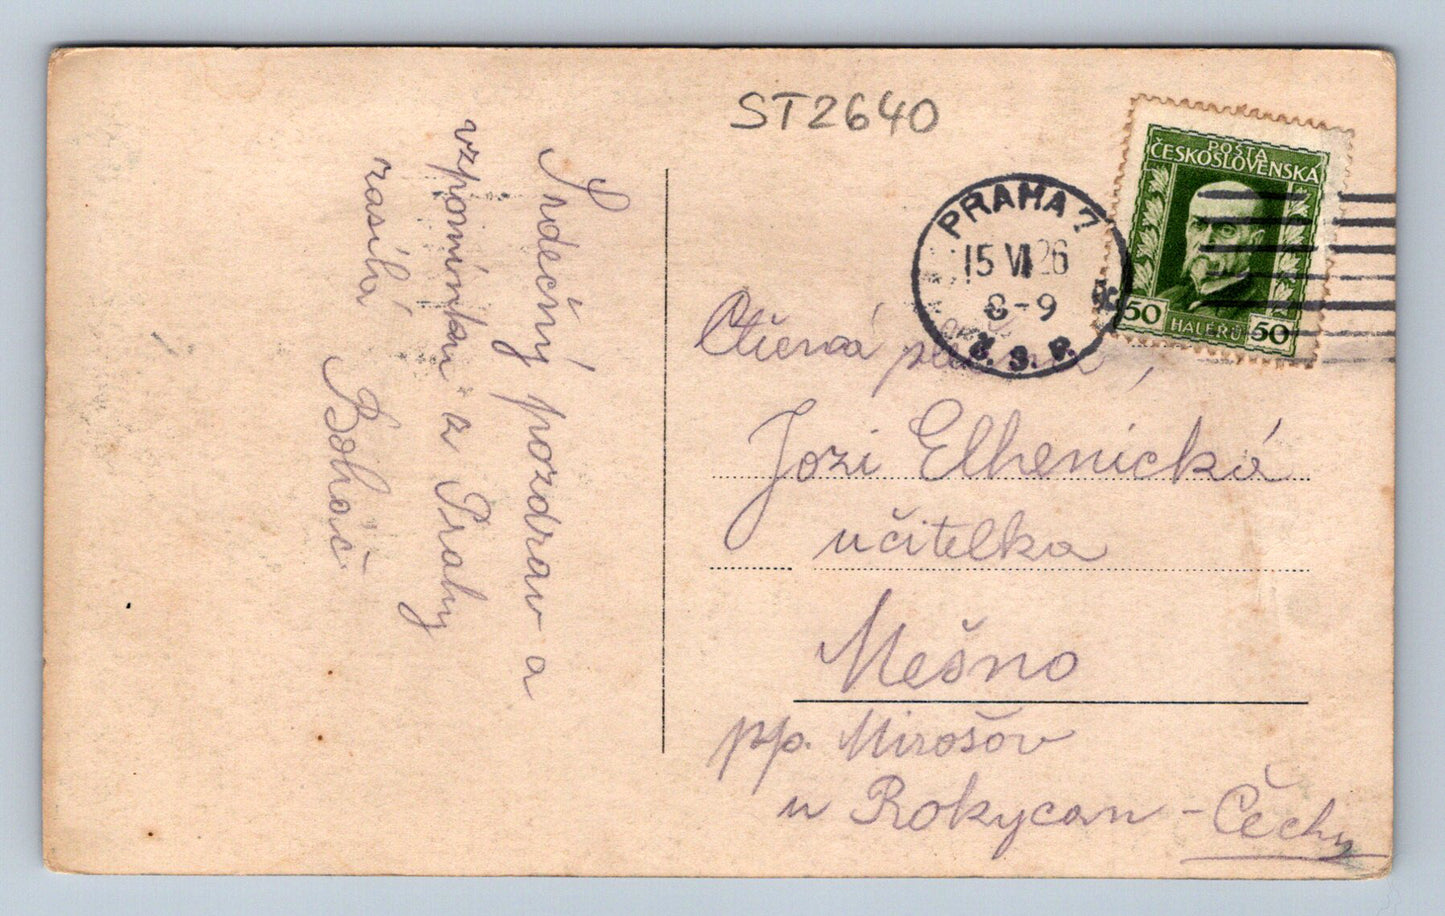 ST2640
POŠTA
ČESKOSLOVENSKA
50 HALÉRŮ 50
PRAHA 7
15 VI 26
8-9
Č. S. P.
Srdečný pozdrav a
vzpomínku z Prahy
zasílá
Boháč
Ctěná
Jozi Elhenická
učitelka
Mešno
pp. Mirošov
u Rokycan - Čechy